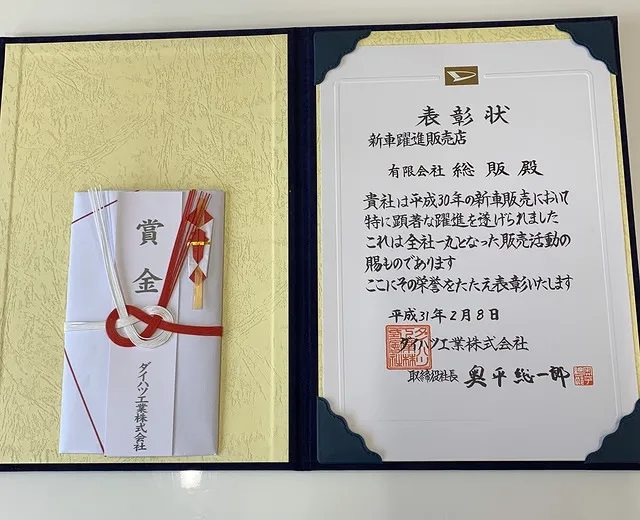 賞金
ダイハツ工業株式会社
表彰状
新車躍進販売店
有限会社 総販 殿
貴社は平成30年の新車販売において
特に顕著な躍進を遂げられました
これは全社一丸となった販売活動の
賜ものであります
ここにその栄誉をたたえ表彰いたします
平成31年2月8日
ダイハツ工業株式会社
取締役社長 奥平総一郎